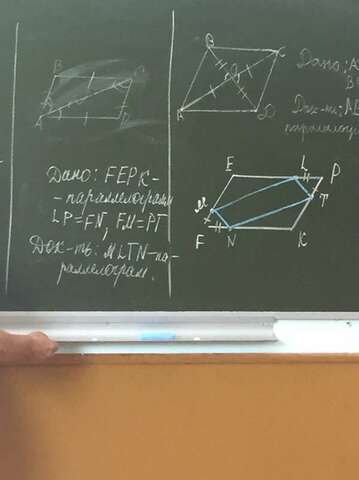 B
C
A
D
B
C
O
A
D
Дано:
Док-ть:
параллелогр
Дано: FEPK-
-параллелограмм
LP=FN, FM=PT
Док-ть: MLTN-па-
раллелограм.
E
L
P
M
T
F
N
K